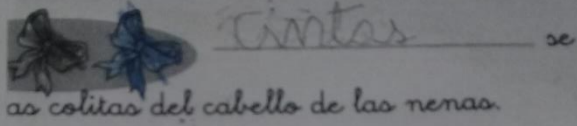 cintas se
as colitas del cabello de las nenas.